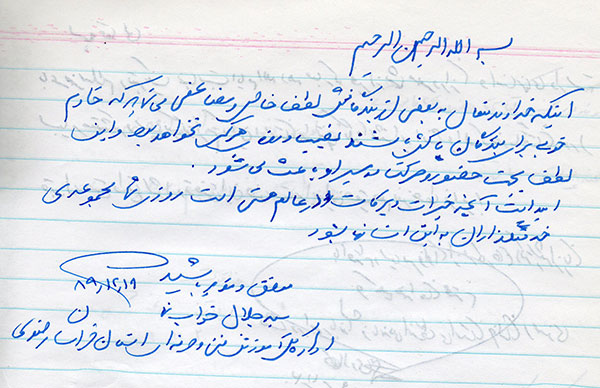 بسم الله الرحمن الرحیم
اینکه خداوند متعال به بعضی از بندگانش لطف خاص و می‌کند که خادم
خوبی برای بندگان پاکش باشند نصیب هر کس نخواهد بود و این
لطف حضور و حرکت در مسیر او باعث می‌شود.
امید است آنچه خیرات و برکات در عالم هستی است روزی شما مجموعه‌ی
خدمتگذاران به این آستان بشود
موفق و موید باشید
۸۹,۱۲,۱۹
سید جلال
اداره کل آموزش فنی و حرفه‌ای استان خراسان رضوی